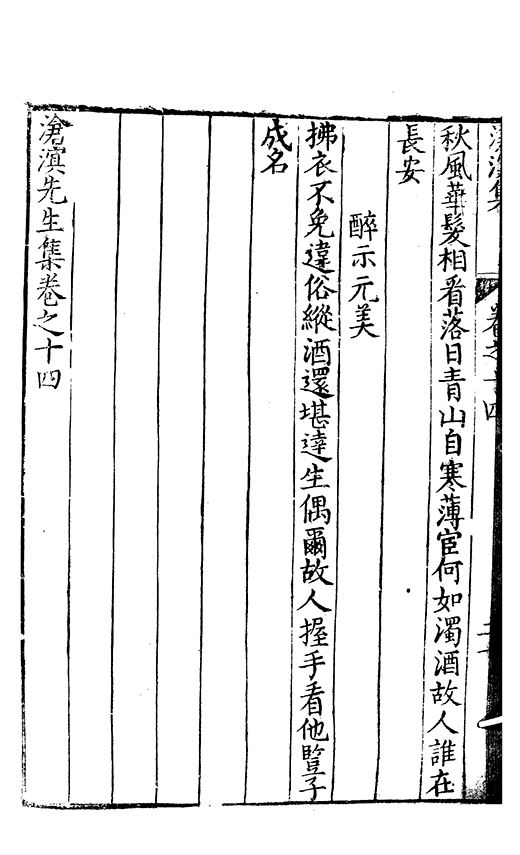 滄溟集
卷之十四
秋風華髮相看落日青山自寒薄宦何如濁酒故人誰在
長安
醉示元美
拂衣不免違俗縱酒還堪達生偶爾故人握手看他豎子
成名
滄溟先生集卷之十四